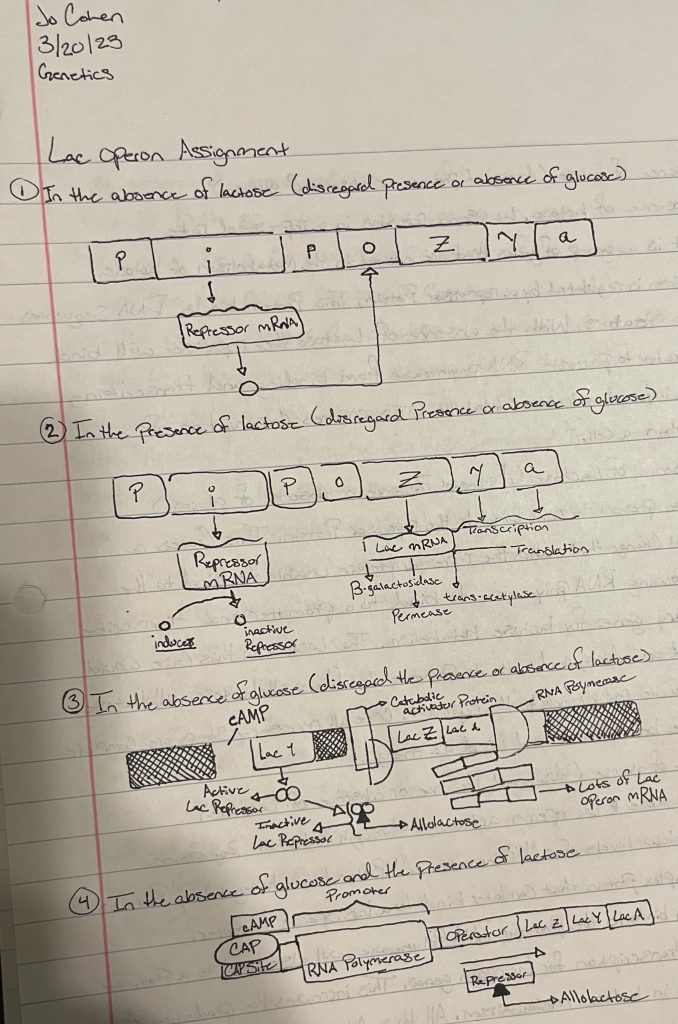 Jo Cohen
3/20/23
Genetics
Lac Operon Assignment
① In the absence of lactose (disregard presence or absence of glucose)
P i P O Z Y a
Repressor mRNA
② In the Presence of lactose (disregard Presence or absence of glucose)
P i P O Z Y a
Repressor mRNA
Lac mRNA
Transcription
Translation
β-galactosidase
trans-acetylase
Permease
inducer
inactive Repressor
③ In the absence of glucose (disregard the Presence or absence of lactose)
cAMP
Catabolic activator Protein
RNA Polymerase
Lac Y
Lac Z
Active Lac Repressor
Inactive Lac Repressor
Allolactose
Lots of Lac operon mRNA
④ In the absence of glucose and the presence of lactose
Promoter
cAMP
CAP
CAP Site
RNA Polymerase
Operator Lac Z Lac Y Lac A
Repressor
Allolactose